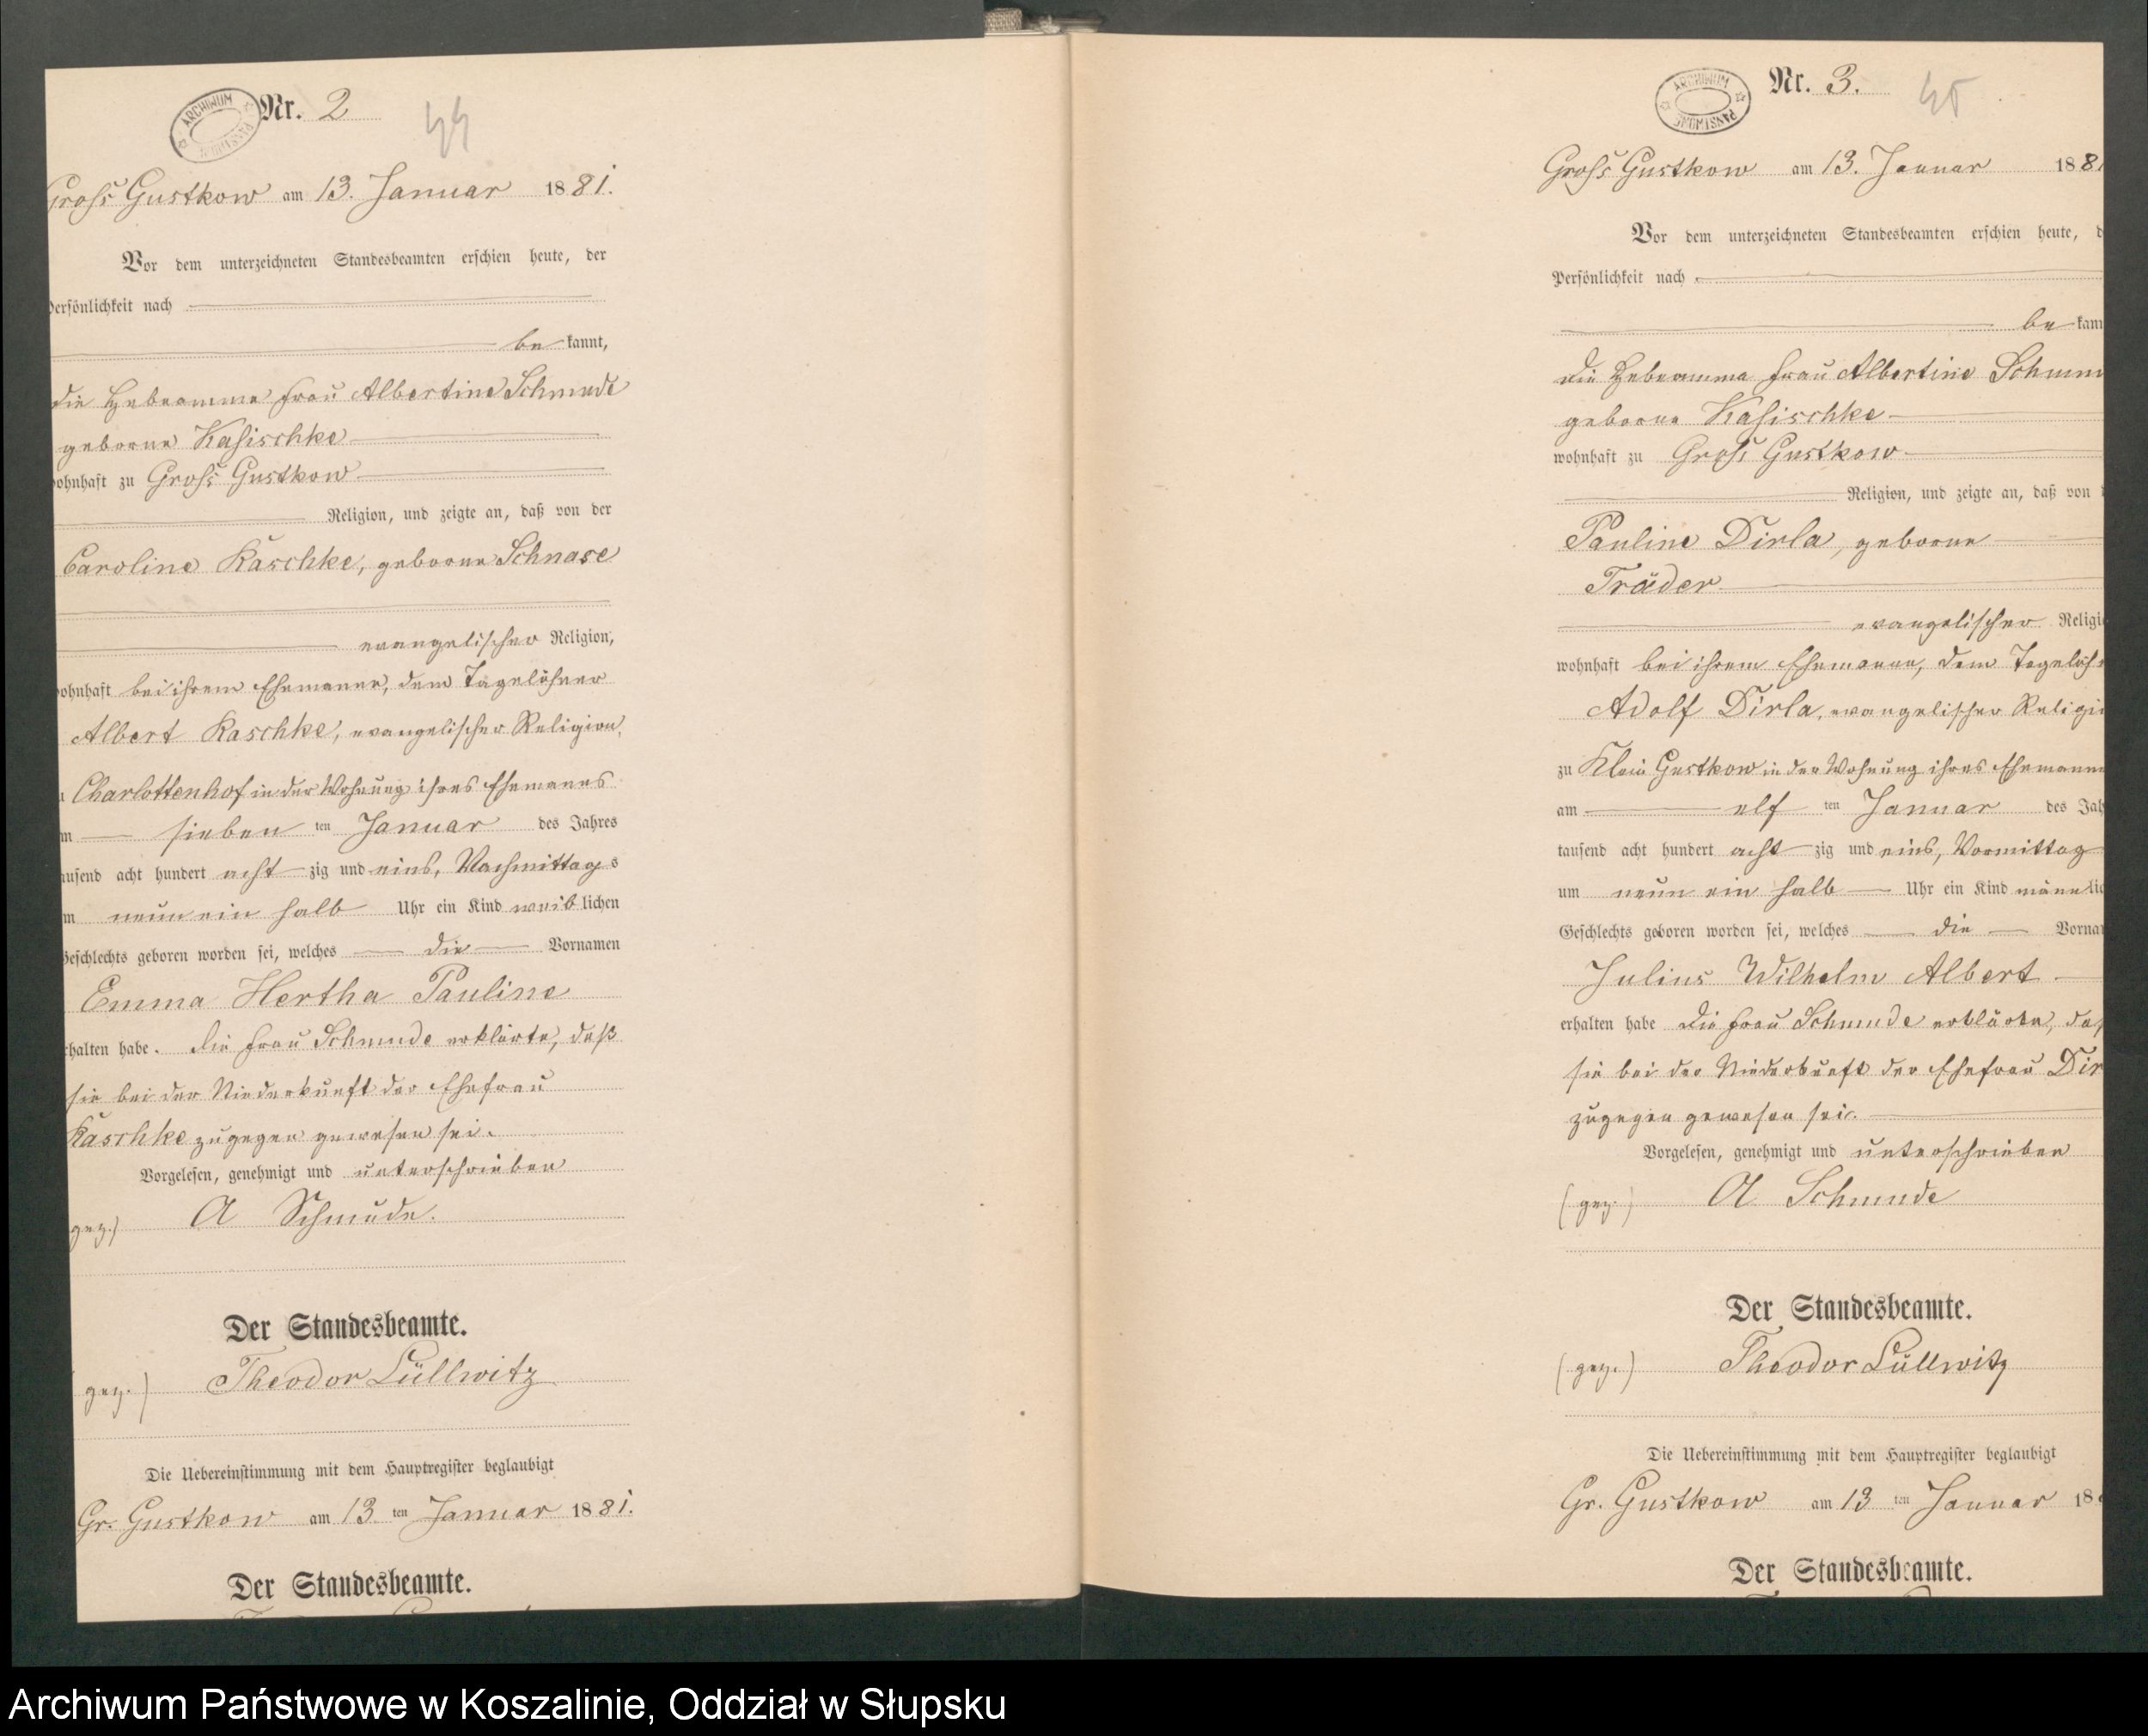 ARCHIWUM PAŃSTWOWE
Nr. 2
44
Gross Gustkow am 13. Januar 1881.
Vor dem unterzeichneten Standesbeamten erschien heute, der
Persönlichkeit nach
be kannt,
die Hebeamme Frau Albertine Schmude
geborne Kasischke
wohnhaft zu Gross Gustkow
Religion, und zeigte an, daß von der
Caroline Kaschke, geborne Schnase
evangelischer Religion,
wohnhaft bei ihrem Ehemanne, dem Tagelöhner
Albert Kaschke, evangelischer Religion,
Charlottenhof in der Wohnung ihres Ehemanns
sieben ten Januar des Jahres
tausend acht hundert acht zig und eins, Nachmittags
neun ein halb Uhr ein Kind weib lichen
Geschlechts geboren worden sei, welches die Vornamen
Emma Hertha Pauline
erhalten habe. Die Frau Schmude erklärte, daß
sie bei der Niederkunft der Ehefrau
Kaschke zugegen gewesen sei.
Vorgelesen, genehmigt und unterschrieben
gez.) A Schmude.
Der Standesbeamte.
gez.) Theodor Lüllwitz
Die Uebereinstimmung mit dem Hauptregister beglaubigt
Gr. Gustkow am 13 ten Januar 1881.
Der Standesbeamte.
ARCHIWUM PAŃSTWOWE
Nr. 3.
45
Gross Gustkow am 13. Januar 1881
Vor dem unterzeichneten Standesbeamten erschien heute, d
Persönlichkeit nach
be kann
die Hebeamme Frau Albertine Schmu
geborne Kasischke
wohnhaft zu Gross Gustkow
Religion, und zeigte an, daß von
Pauline Dirla, geborne
Träder
evangelischer Religi
wohnhaft bei ihrem Ehemanne, dem Tagelöh
Adolf Dirla, evangelischer Religi
zu Klein Gustkow in der Wohnung ihres Ehemann
am elf ten Januar des Jah
tausend acht hundert acht zig und eins, Vormittag
um neun ein halb Uhr ein Kind männ lic
Geschlechts geboren worden sei, welches die Vorna
Julius Wilhelm Albert
erhalten habe Die Frau Schmude erklärte, daß
sie bei der Niederkunft der Ehefrau Dir
zugegen gewesen sei.
Vorgelesen, genehmigt und unterschrieben
(gez.) A Schmude
Der Standesbeamte.
(gez.) Theodor Lüllwitz
Die Uebereinstimmung mit dem Hauptregister beglaubigt
Gr. Gustkow am 13 ten Januar 18
Der Standesbeamte.
Archiwum Państwowe w Koszalinie, Oddział w Słupsku